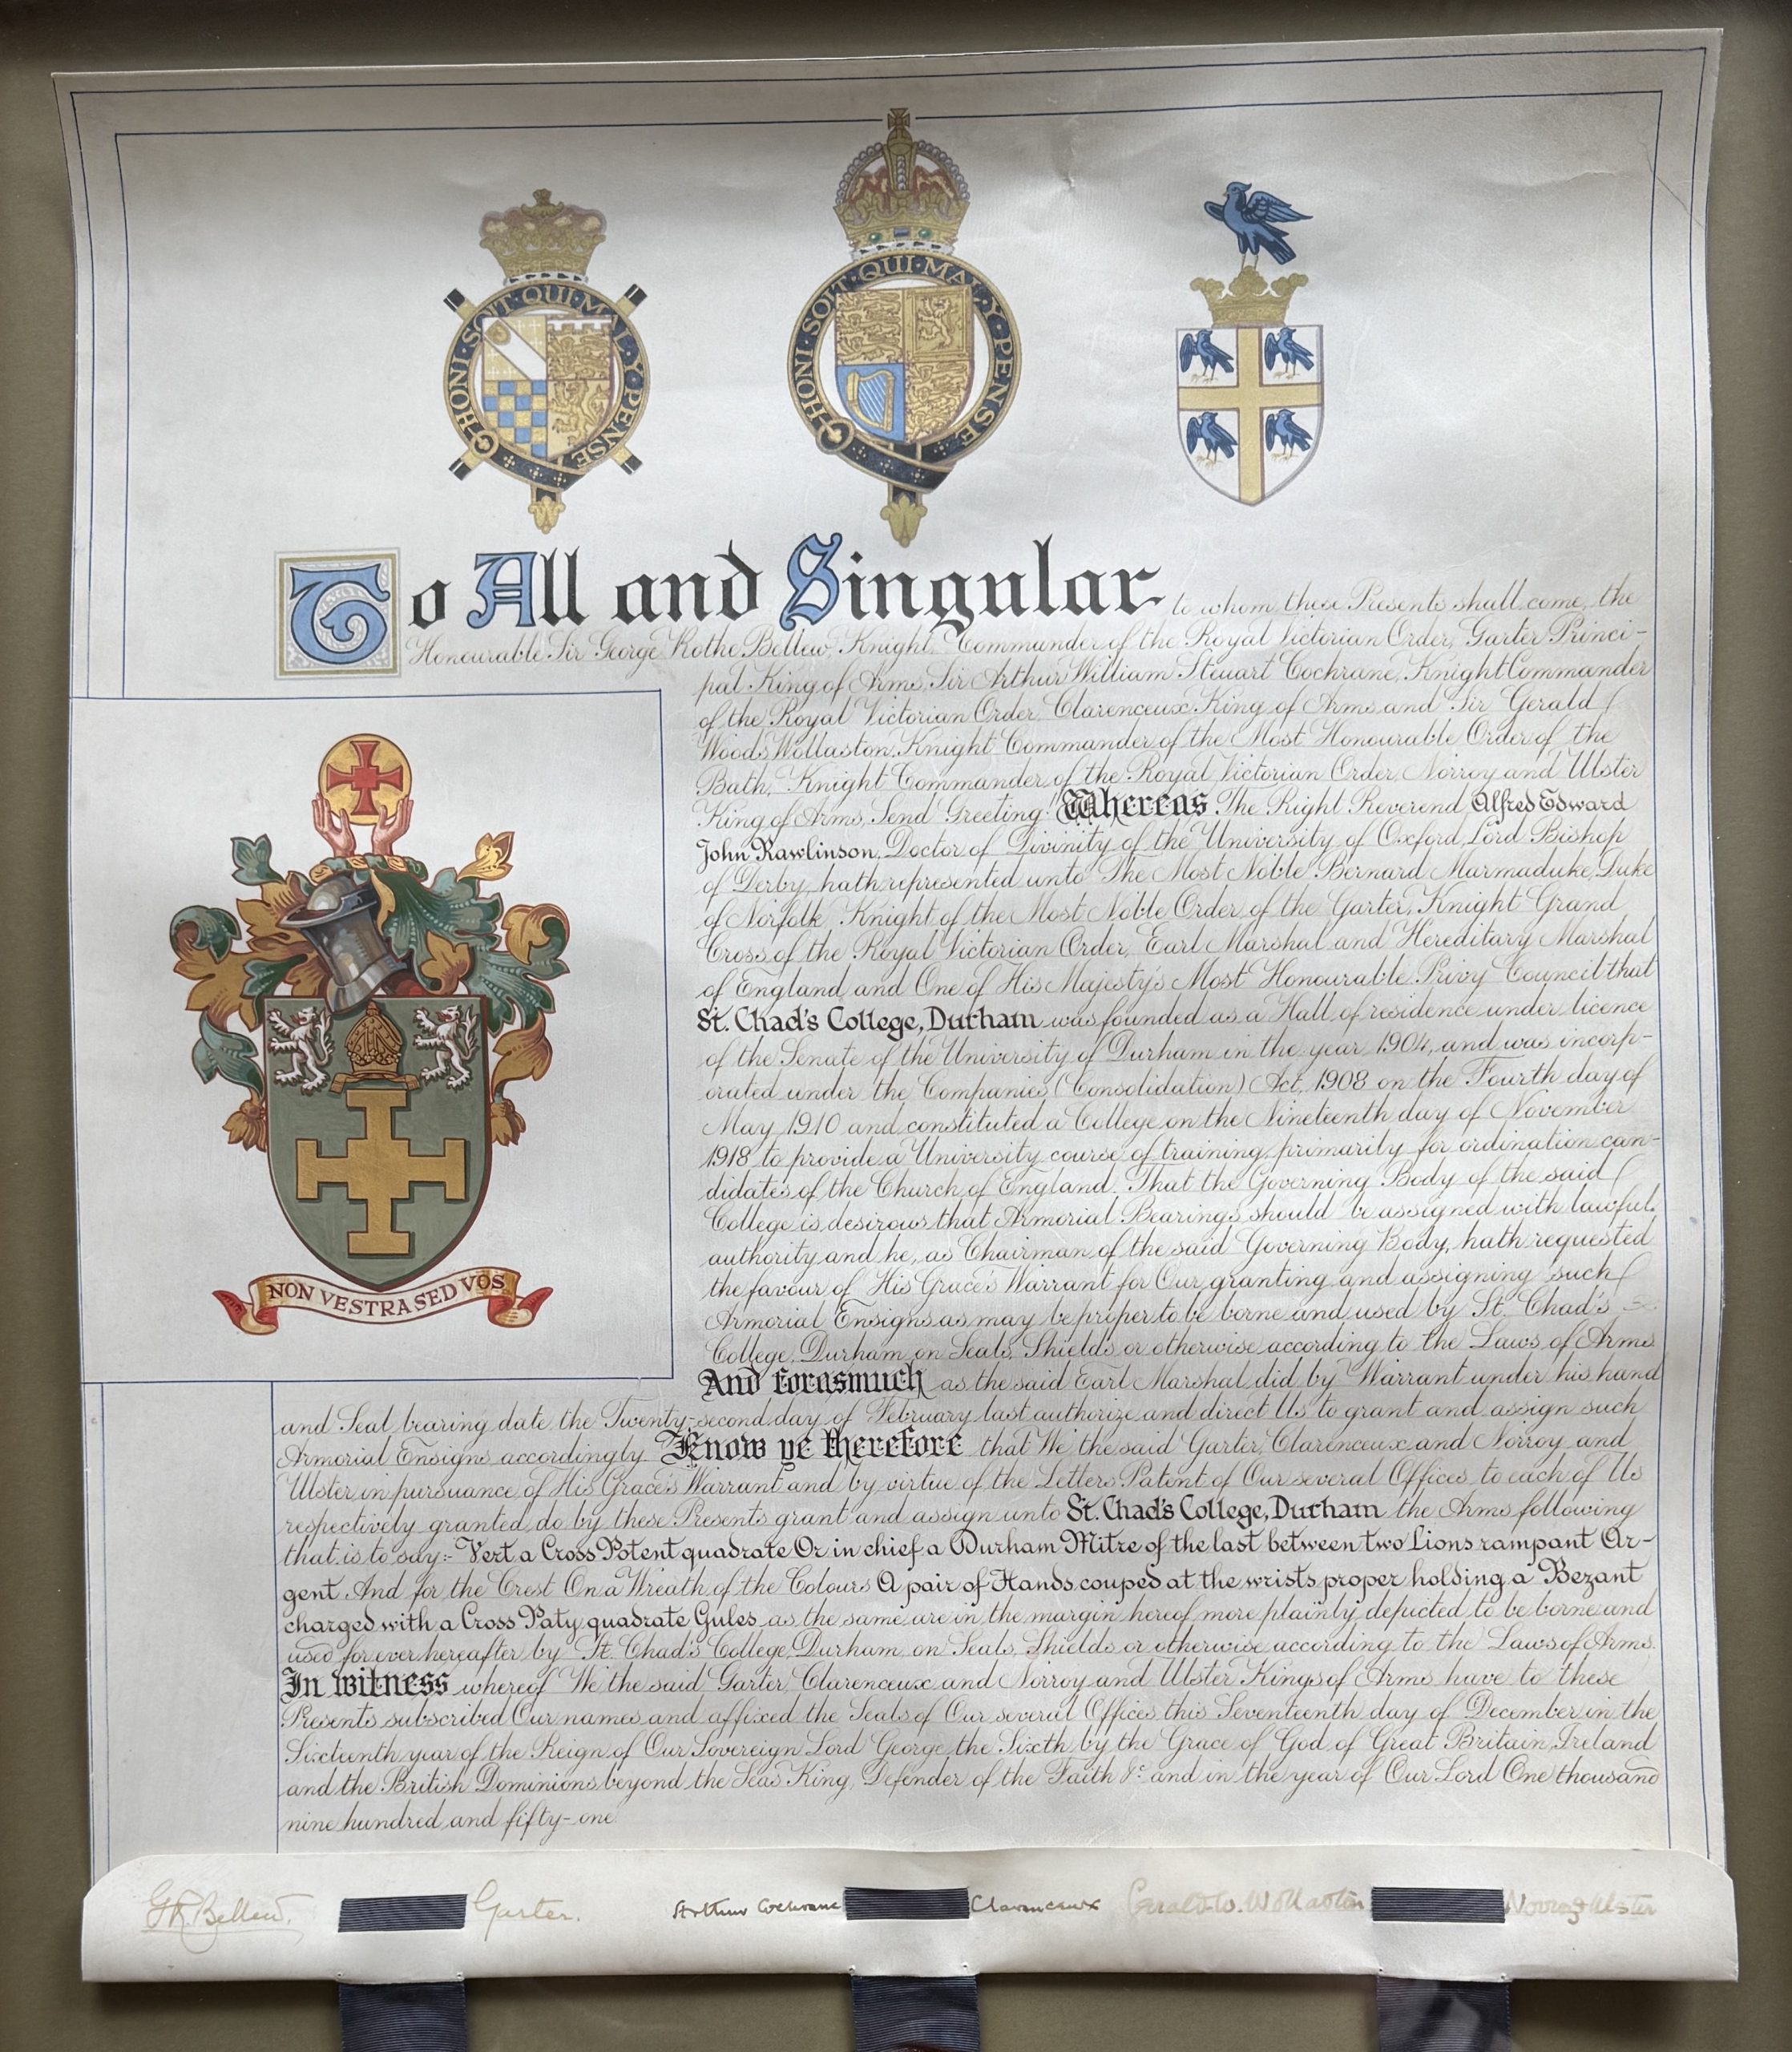 HONI·SOIT·QUI·MAL·Y·PENSE
HONI·SOIT·QUI·MAL·Y·PENSE
To All and Singular to whom these Presents shall come, the
Honourable Sir George Rothe Bellew, Knight Commander of the Royal Victorian Order, Garter Princi-
pal King of Arms, Sir Arthur William Steuart Cochrane, Knight Commander
of the Royal Victorian Order, Clarenceux King of Arms and Sir Gerald
Woods Wollaston, Knight Commander of the Most Honourable Order of the
Bath, Knight Commander of the Royal Victorian Order, Norroy and Ulster
King of Arms, Send Greeting Whereas The Right Reverend Alfred Edward
John Rawlinson, Doctor of Divinity of the University of Oxford, Lord Bishop
of Derby, hath represented unto The Most Noble Bernard Marmaduke, Duke
of Norfolk, Knight of the Most Noble Order of the Garter, Knight Grand
Cross of the Royal Victorian Order, Earl Marshal and Hereditary Marshal
of England and One of His Majesty's Most Honourable Privy Council that
St. Chad's College, Durham was founded as a Hall of residence under licence
of the Senate of the University of Durham in the year 1904, and was incorp-
orated under the Companies (Consolidation) Act, 1908 on the Fourth day of
May 1910 and constituted a College on the Nineteenth day of November
1918 to provide a University course of training primarily for ordination can-
didates of the Church of England. That the Governing Body of the said
College is desirous that Armorial Bearings should be assigned with lawful
authority and he, as Chairman of the said Governing Body, hath requested
the favour of His Grace's Warrant for Our granting and assigning such
Armorial Ensigns as may be proper to be borne and used by St. Chad's
College, Durham on Seals, Shields or otherwise according to the Laws of Arms
And forasmuch as the said Earl Marshal did by Warrant under his hand
and Seal bearing date the Twenty-second day of February last authorize and direct Us to grant and assign such
Armorial Ensigns accordingly Know ye therefore that We the said Garter, Clarenceux and Norroy and
Ulster in pursuance of His Grace's Warrant and by virtue of the Letters Patent of Our several Offices to each of Us
respectively granted, do by these Presents grant and assign unto St. Chad's College, Durham the Arms following
that is to say:- Vert a Cross Potent quadrate Or in chief a Durham Mitre of the last between two Lions rampant Ar-
gent And for the Crest On a Wreath of the Colours A pair of Hands couped at the wrists proper holding a Bezant
charged with a Cross Paty quadrate Gules as the same are in the margin hereof more plainly depicted to be borne and
used for ever hereafter by St. Chad's College, Durham on Seals, Shields or otherwise according to the Laws of Arms.
In witness whereof We the said Garter, Clarenceux and Norroy and Ulster Kings of Arms have to these
Presents subscribed Our names and affixed the Seals of Our several Offices this Seventeenth day of December in the
Sixteenth year of the Reign of Our Sovereign Lord George the Sixth by the Grace of God of Great Britain, Ireland
and the British Dominions beyond the Seas King, Defender of the Faith &c and in the year of Our Lord One thousand
nine hundred and fifty-one
NON VESTRA SED VOS
G R Bellew. Garter. Arthur Cochrane Clarenceux Gerald W. Wollaston Norroy & Ulster